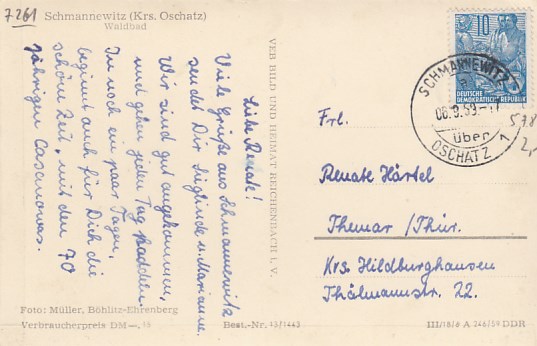 7261
Schmannewitz (Krs. Oschatz)
Waldbad
Liebe Renate!
Viele Grüße aus Schmannewitz
sendet Dir Sieglinde u. Marianne.
Wir sind gut angekommen,
und gehen jeden Tag baden.
In noch ein paar Tagen,
beginnt auch für Dich die
schöne Zeit, mit den 70
jährigen Casanovas.
Foto: Müller, Böhlitz-Ehrenberg
Verbraucherpreis DM
Best.-Nr. 13/1443
VEB BILD UND HEIMAT REICHENBACH I. V.
10
DEUTSCHE
DEMOKRATISCHE REPUBLIK
SCHMANNEWITZ
über
OSCHATZ
578
2,
Frl.
Renate Härtel
Themar /Thür.
Krs. Hildburghausen
Thälmannstr. 22.
III/18/6 A 246/59 DDR